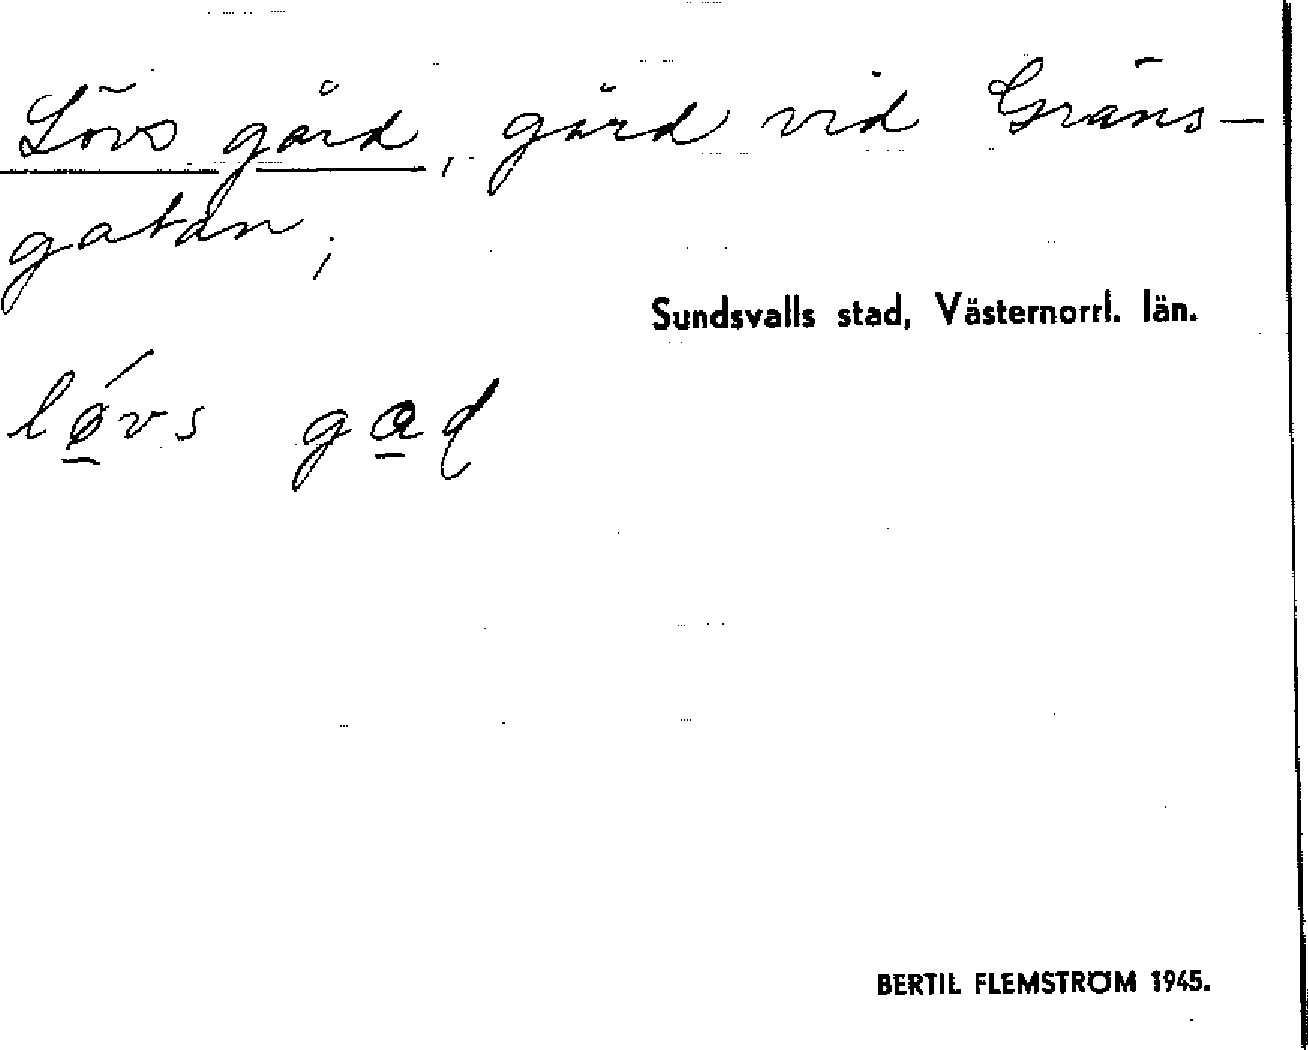 Lövs gård, gård vid Gräns-
gatan;
Sundsvalls stad, Västernorrl. län.
lǿ̲vs ga̲d
BERTIL FLEMSTRÖM 1945.